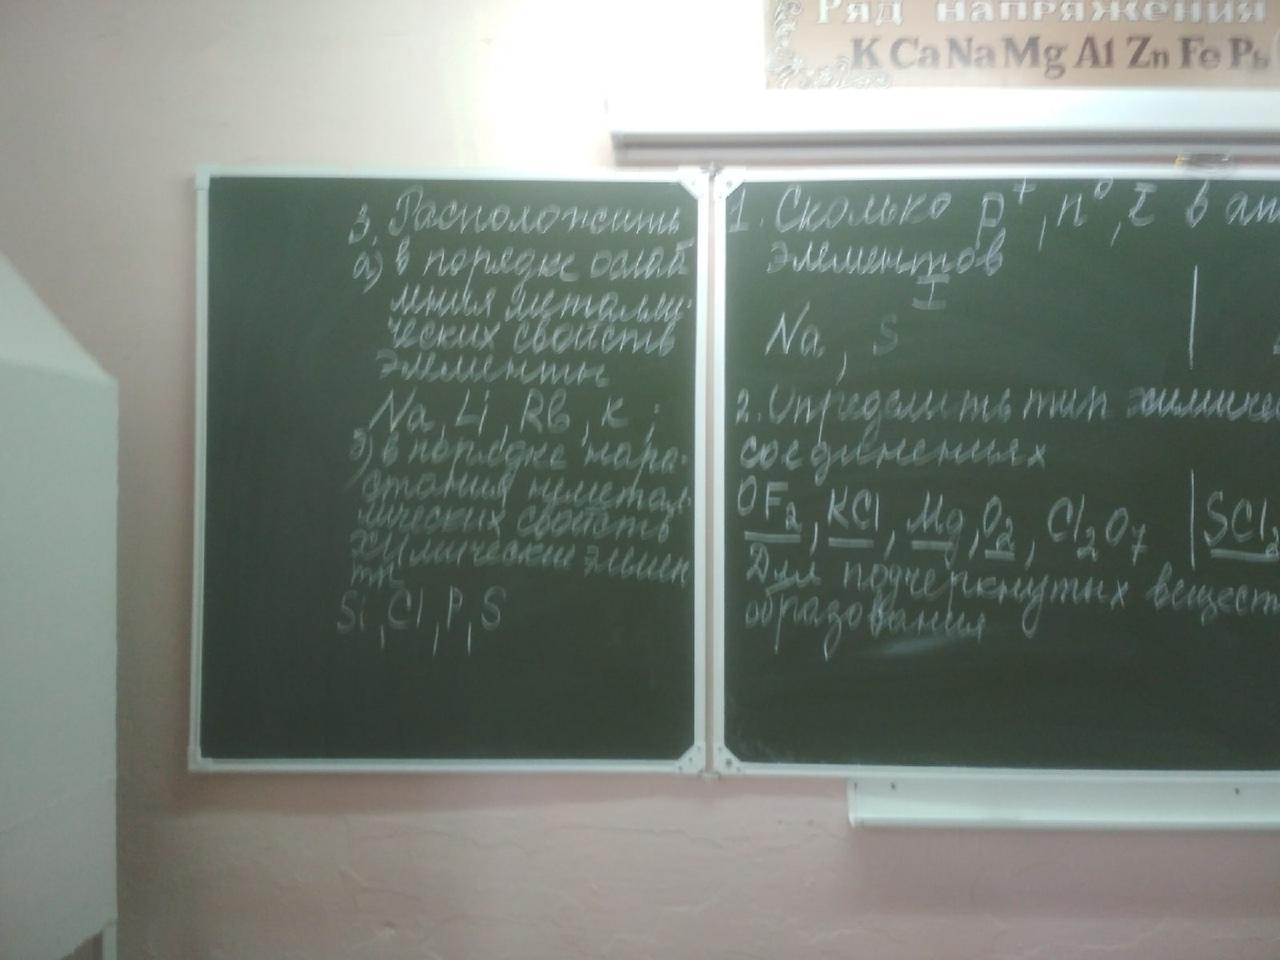 Ряд напряжения
K Ca Na Mg Al Zn Fe Pb
3. Расположить
а) в порядке ослаб
ления металли-
ческих свойств
элементы
Na, Li, Rb, K;
б) в порядке нара-
стания неметал-
лических свойств
химические элемен
ты
Si, Cl, P, S
1. Сколько p⁺, n⁰, ē в ат
элементов
I
Na, S
2. Определить тип химиче
соединениях
OF₂, KCl, Mg, O₂, Cl₂O₇ | SCl₂
Для подчеркнутых вещест
образования